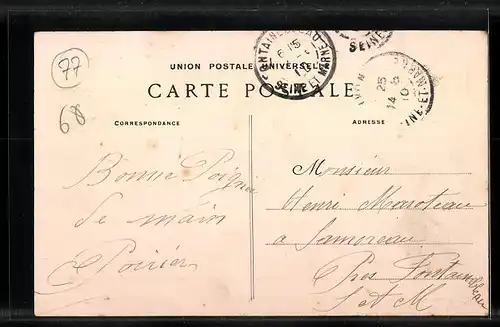 77
68
UNION POSTALE UNIVERSELLE
CARTE POSTALE
CORRESPONDANCE
ADRESSE
FONTAINEBLEAU
6 15
10
SEINE ET MARNE
SEINE
AVON
25
14 5
10
NE-ET-MARNE
Bonne Poignée
de main
Poirier
Monsieur
Henri Maroteau
a Samoreau
Pres Fontainebleau
S et M